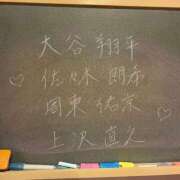 大谷 翔平
佐々木 朗希
周東 佑京
上沢 直之